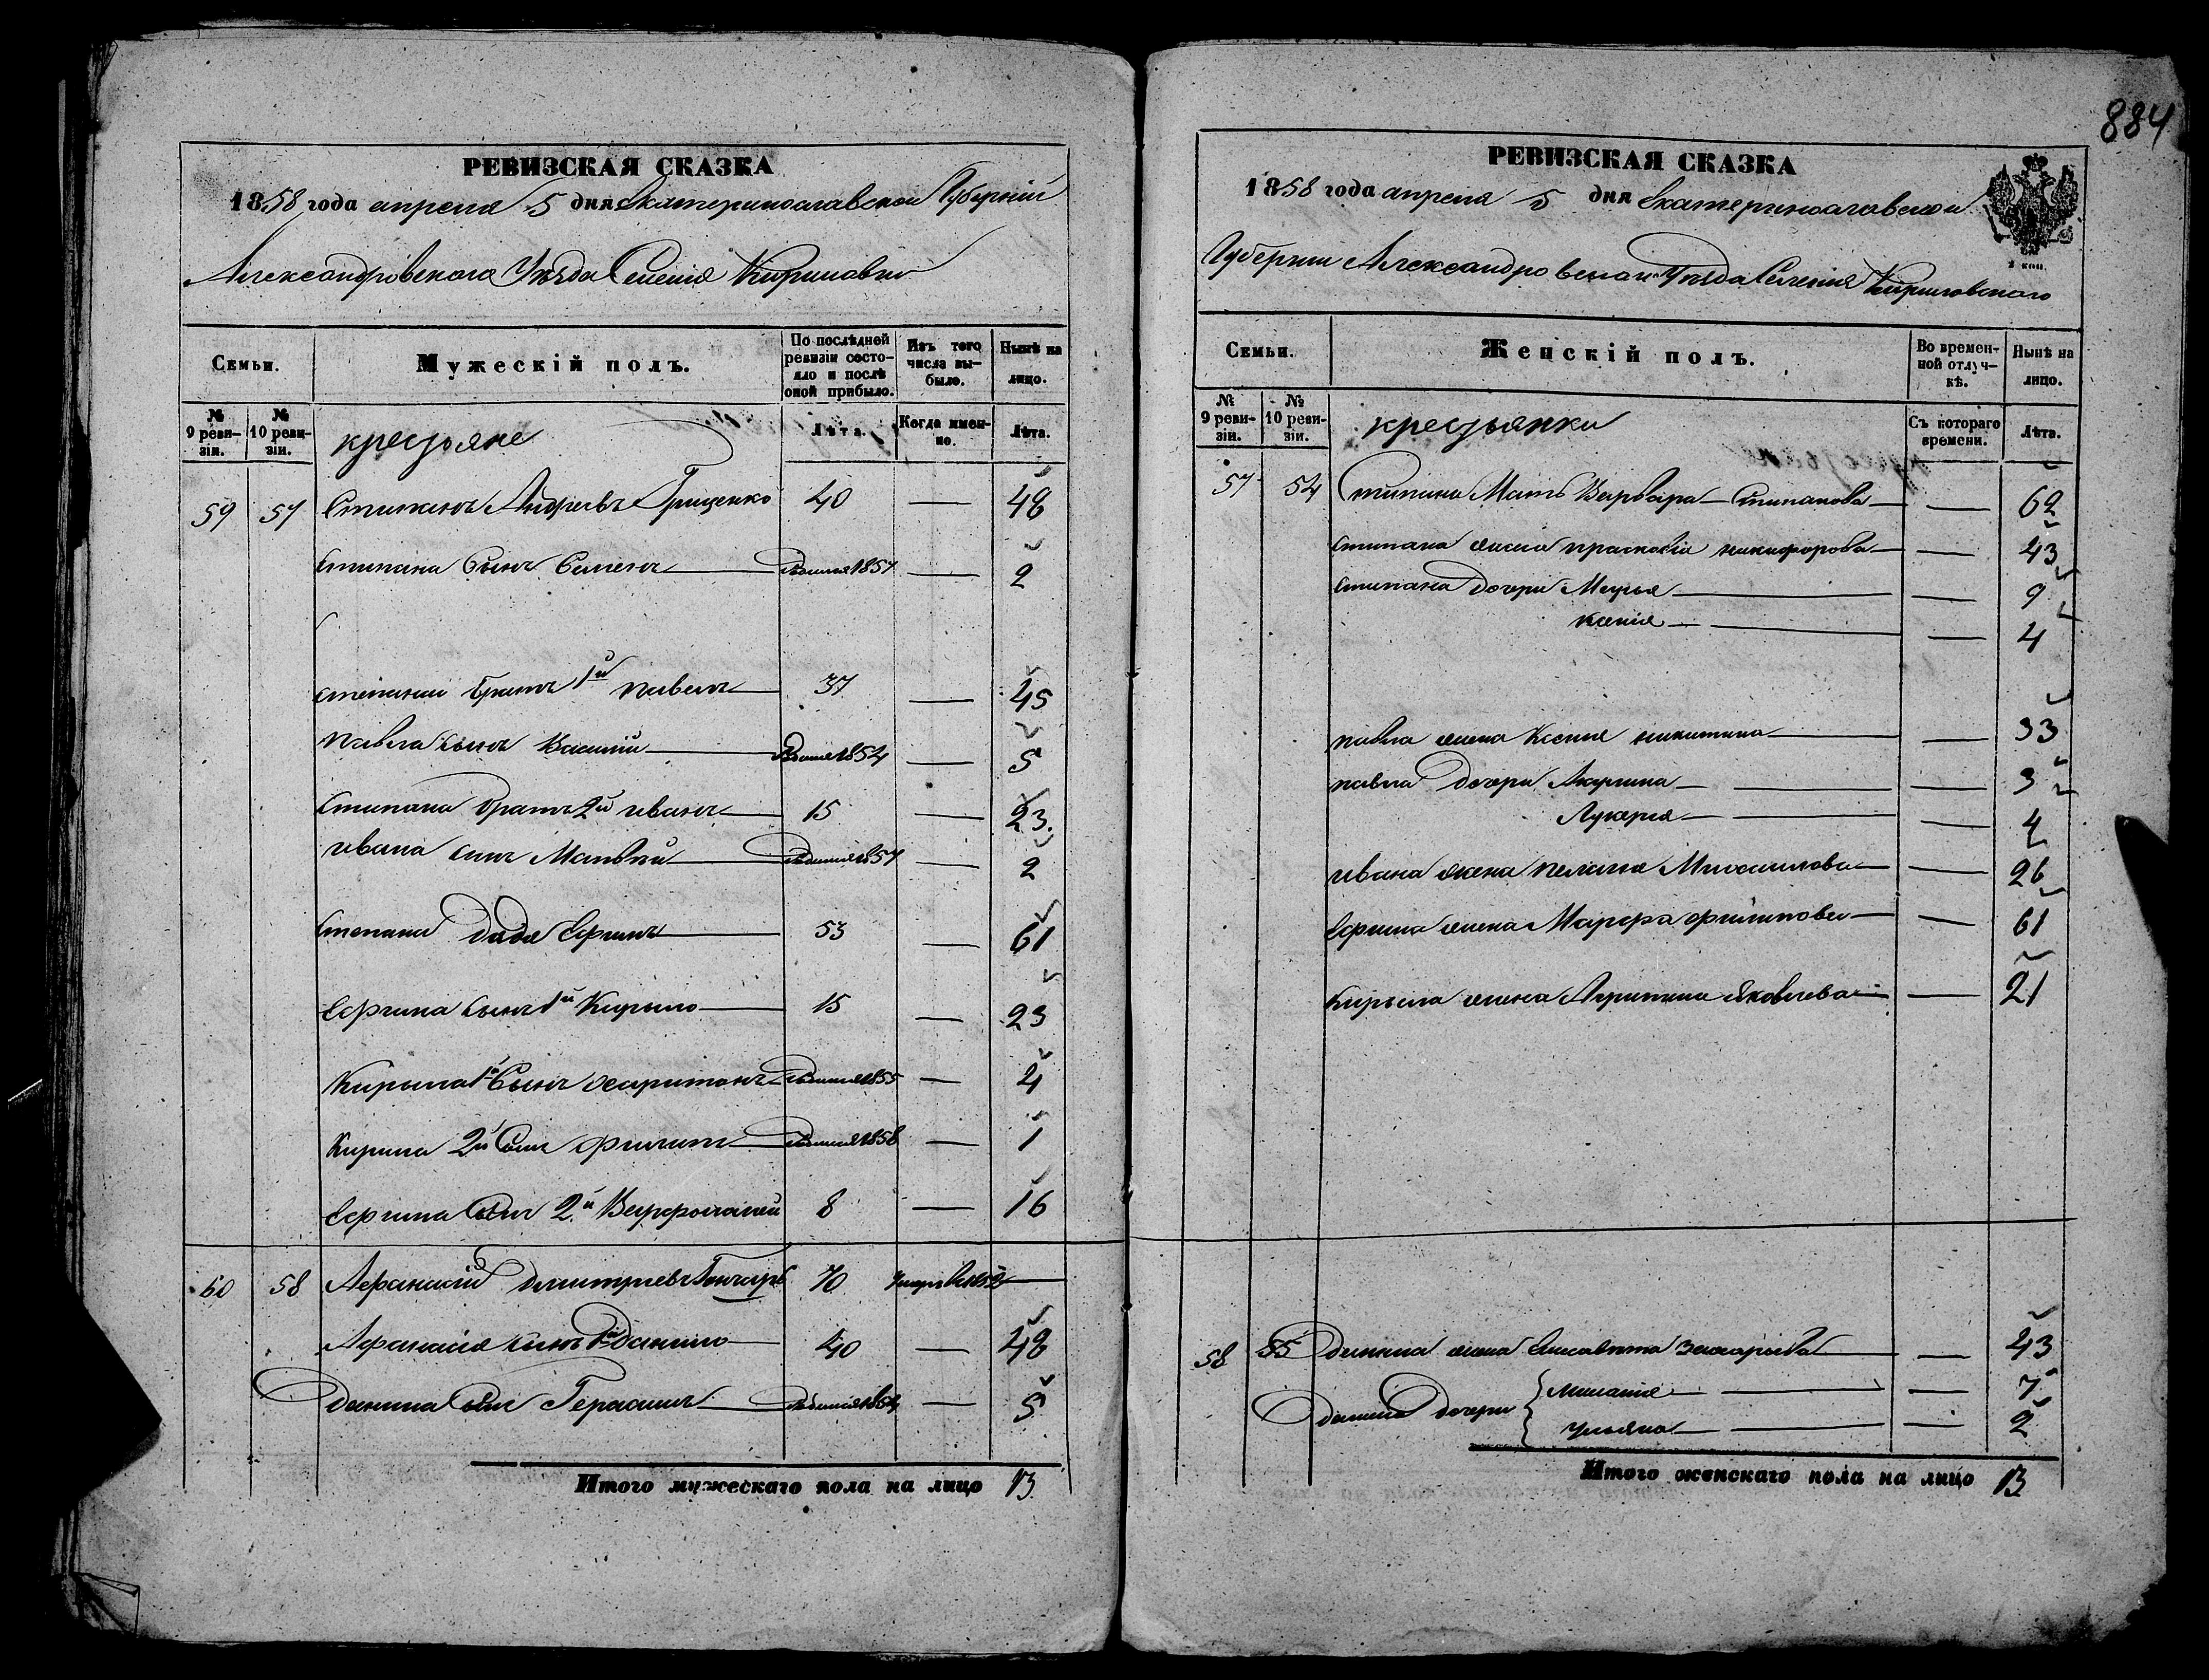 884
РЕВИЗСКАЯ СКАЗКА
1858 года апреля 5 дня Екатеринославской Губерніи
Александровского Уезда Селенія Кириловки
Семьи.
Мужескій полъ.
По послѣдней ревизіи состояло и послѣ оной прибыло.
Изъ того числа выбыло.
Нынѣ на лицо.
№ 9 ревизіи.
№ 10 ревизіи.
крестьяне
Лѣта.
Когда именно.
Лѣта.
59 57 Степанъ Андреевъ Грищенко 40 — 48
Степана Сынъ Семенъ 1857 — 2
Степана братъ 1й павелъ 37 — 45
павла сынъ Василій 1854 — 5
Степана братъ 2й иванъ 15 — 23
ивана сынъ Матвей 1857 — 2
Степана дядя Ефимъ 53 — 61
Ефима сынъ 1й Кирило 15 — 23
Кирыла 1й Сынъ харитонъ 1855 — 4
Кирила 2й Сынъ филипъ 1858 — 1
Ефима Сынъ 2й Варфоломей 8 — 16
60 58 Афанасій дмитриевъ Гончаръ 70 —
Афанасія сынъ 1й данило 40 — 48
данила Сынъ Герасимъ 1854 — 5
Итого мужескаго пола на лицо 13
РЕВИЗСКАЯ СКАЗКА
1858 года апреля 5 дня Екатеринославской
Губернии Александровскаго Уезда Селения Кириловского
2 коп.
Семьи.
Женскій полъ.
Во временной отлучкѣ.
Нынѣ на лицо.
№ 9 ревизіи.
№ 10 ревизіи.
крестьянки
Съ котораго времени.
Лѣта.
57 54 Степана Мать Варвара Степанова — 62
Степана жена прасковія никифорова — 43
Степана дочери Марья — 9
Ксенія — 4
павла жена Ксенія никитина — 33
павла дочери Акулина — 3
Лукерія — 4
ивана жена пелагея Михаилова — 26
Ефима жена Марфа филипова — 61
Кирыла жена Агрипина Яковлева — 21
58 55 данила жена Елисавета Захарьева — 43
данила дочери Миланія — 7
Ульяна — 2
Итого женскаго пола на лицо 13